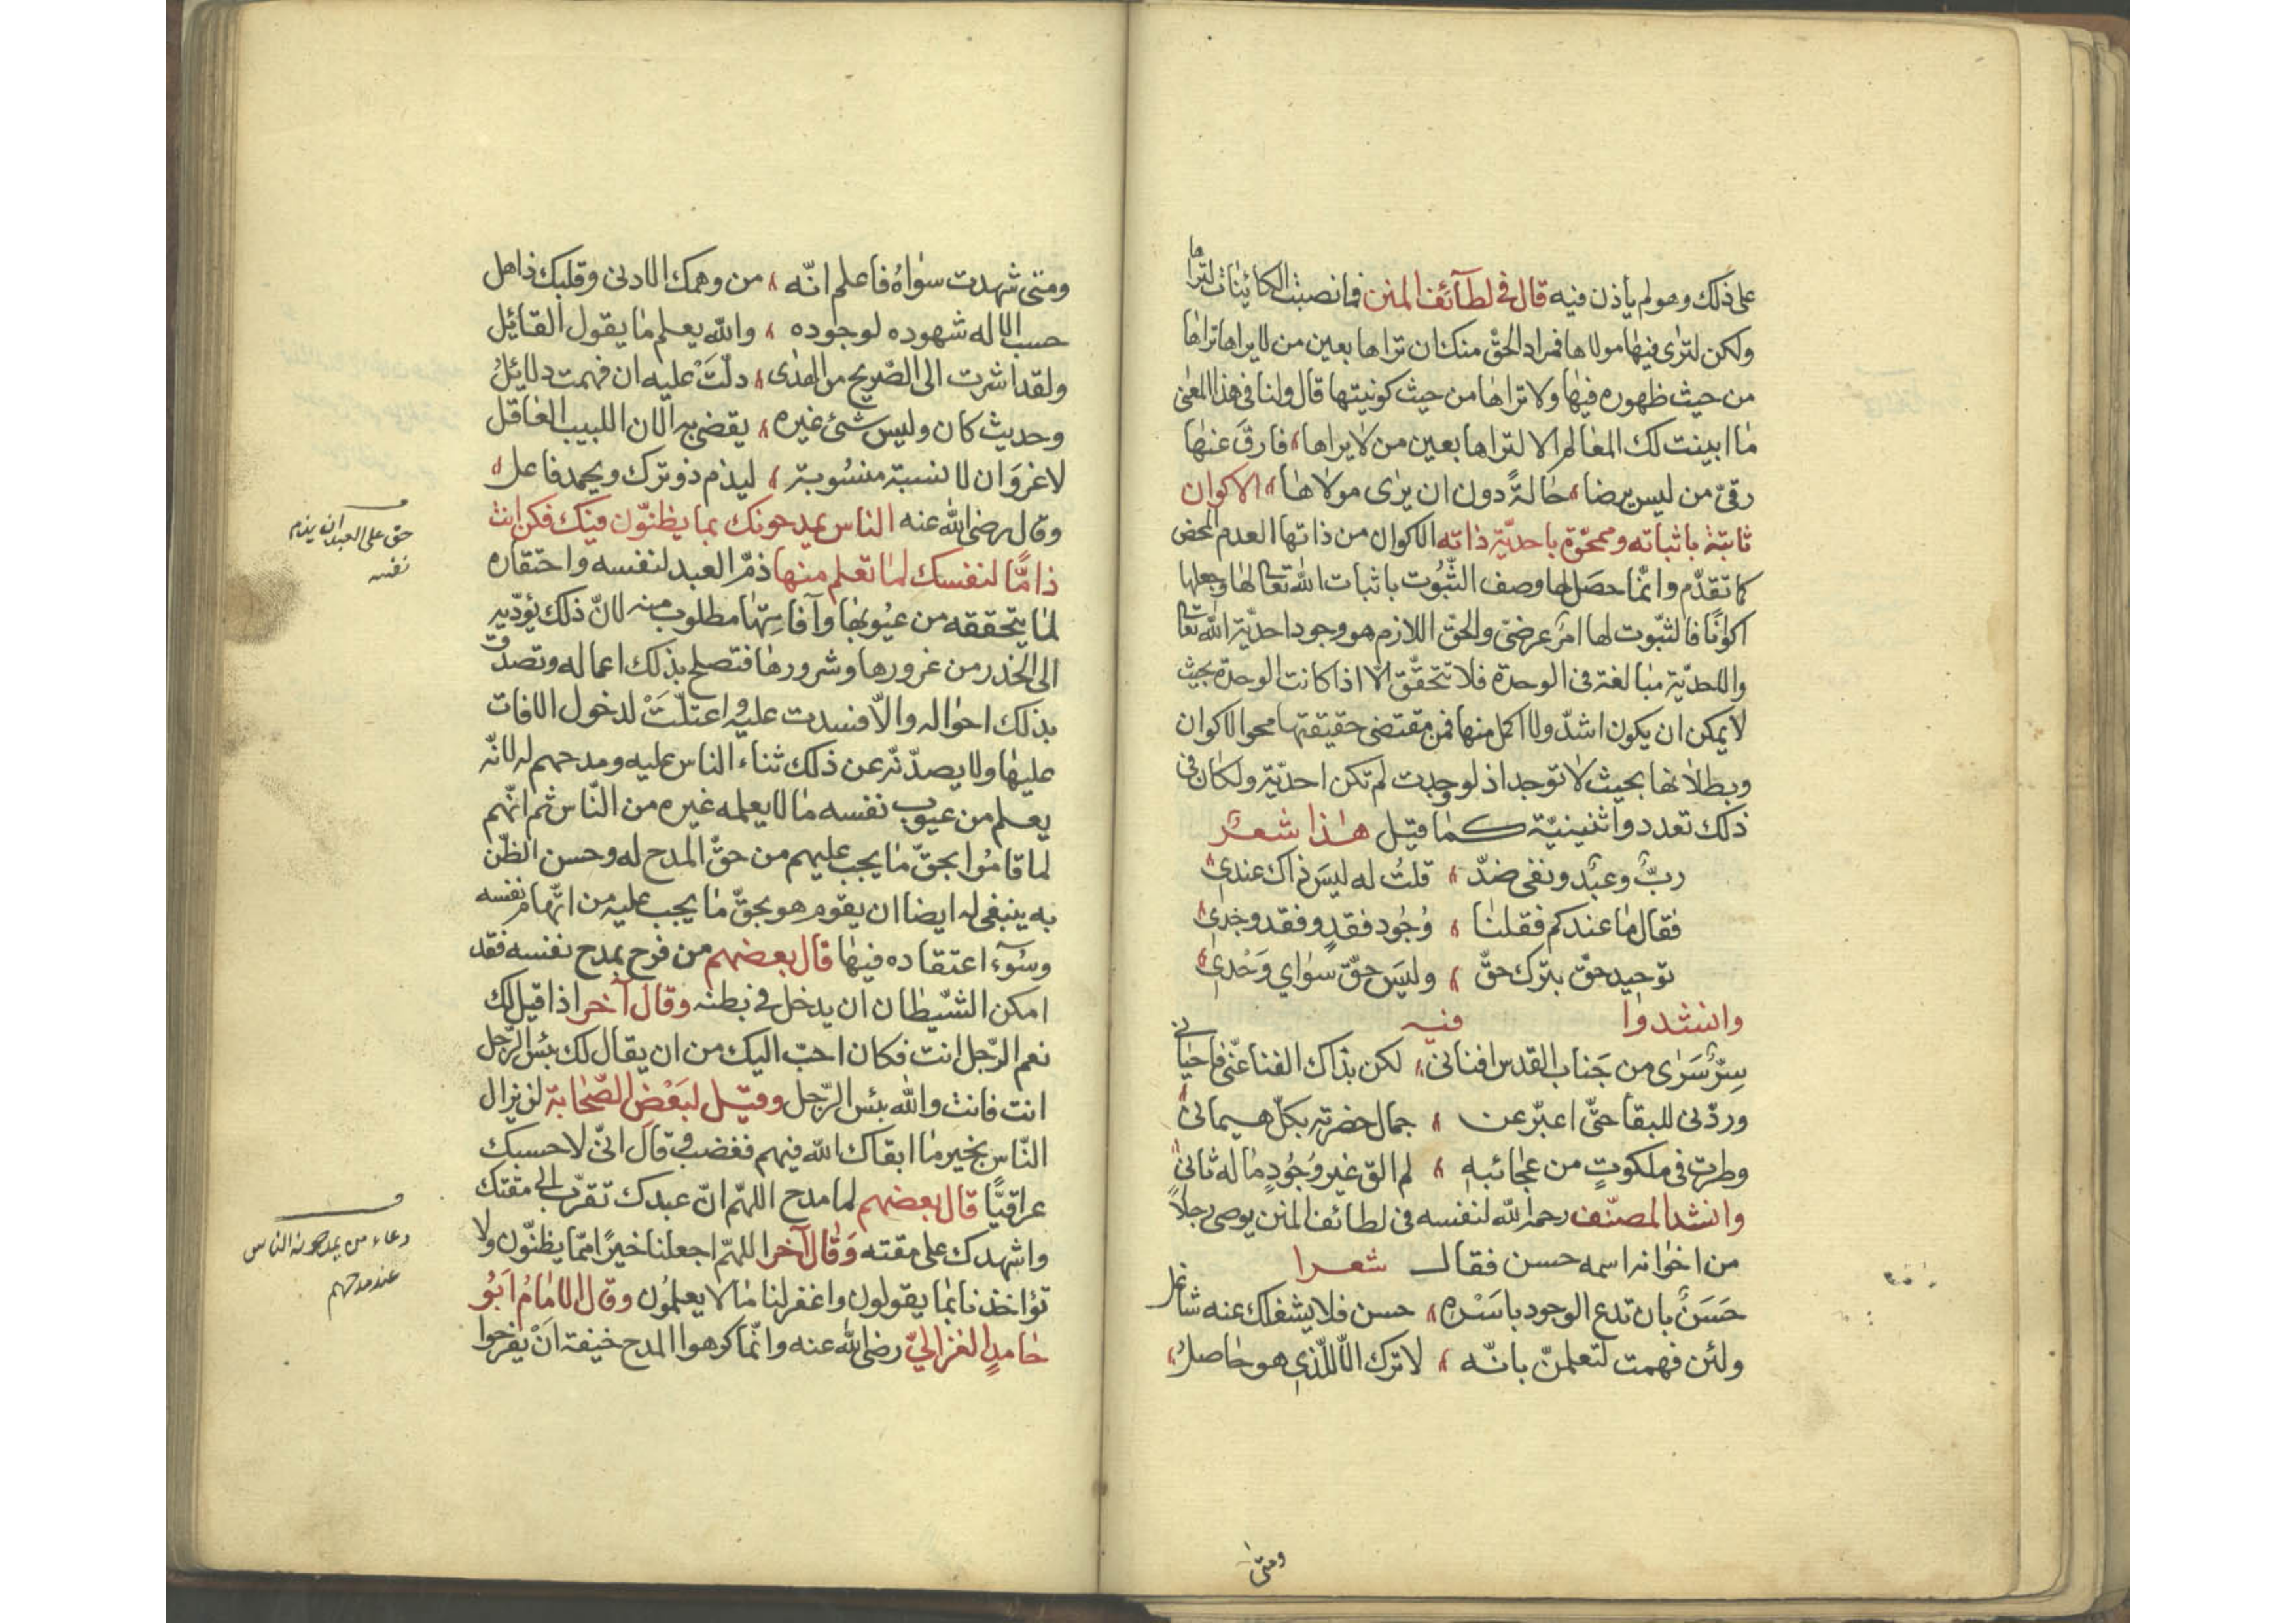 على ذلك وهو لم يأذن فيه قال في لطآئف المنن فما نصبت الكائينات لتراها
ولكن لترى فيها مولاها فمراد الحقّ منك ان تراها بعين من لا يراها تراها
من حيث ظهوره فيها ولا تراها من حيث كونيتها قال ولنا في هذا المعنى
ما ابينت لك المعالم الا لتراها بعين من لا يراها، فارق عنها
رقيّ من ليس يرضا، حالةً دون ان يرى مولاها، الاكوان
ثابتة باثباته وممحوّة باحديّة ذاته الاكوان من ذاتها العدم المحض
كما تقدّم وانّما حصل لها وصف الثّبوت باثبات الله تعالى لها وجعلها
اكوانًا فالثبّوت لها امر عرضيّ والحقّ اللازم هو وجود احديّة الله تعالى
والاحديّة مبالغة في الوحدة فلا تتحقّق الّا اذا كانت الوحدة بحيث
لا يمكن ان يكون اشدّ ولا اكمل منها فمن مقتضى حقيقتها محو الاكوان
وبطلانها بحيث لا توجد اذ لو وجدت لم تكن احديّة ولكان في
ذلك تعدد واثنينيّة كما قيل هذا شعر
ربّ وعبد ونفى ضدّ، قلت له ليس ذاك عندي
فقال ما عندكم فقلنا، وجود فقد وفقد وجدي
توحيد حقّ بترك حقّ، وليس حقّ سواي وحدي
وانشدوا فيه
سرّ سرى من جناب القدس افناني، لكن بذاك الفنا عنّي فاحياني
وردّني للبقا حتّى اعبّر عن، جمال حضرته بكلّ هيماني
وطرت في ملكوتٍ من عجائبه، لم الق غير وجودٍ ما له ثاني
وانشد المصنّف رحمه الله لنفسه في لطائف المنن يوصي رجلاً
من اخوانه اسمه حسن فقال شعرا
حسن بان تدع الوجود باسره، حسن فلا يشغلك عنه شاغل
ولئن فهمت لتعلمنّ بانّه، لا ترك الّا للّذي هو حاصل،
ومتى
ومتى شهدت سواه فاعلم انّه، من وهمك الادنى وقلبك ذاهل
حسب الاله شهوده لوجوده، والله يعلم ما يقول القائل
ولقد اشرت الى الصّريح من الهدى، دلّت عليه ان فهمت دلائل
وحديث كان وليس شئ غيره، يقضي به الآن اللبيب العاقل
لا غرو ان لا نسبة منسوبة، ليذم ذو ترك ويحمد فاعل،
وقال رضى الله عنه الناس يمدحونك بما يظنّون فيك فكن انت
ذامًّا لنفسك لما تعلم منها ذمّ العبد لنفسه واحتقاره
لما يتحققه من عيوبها وآفاتها مطلوب منه لانّ ذلك يؤدّيه
الى الحذر من غرورها وشرورها فتصلح بذلك اعماله وتصدق
بذلك احواله والّا فسدت عليه واعتلّت لدخول الافات
عليها ولا يصدّنّه عن ذلك ثناء الناس عليه ومدحهم له لانّه
يعلم من عيوب نفسه ما لا يعلمه غيره من النّاس ثم انّهم
لما قاموا بحقّ ما يجب عليهم من حقّ المدح له وحسن الظّن
به ينبغي له ايضا ان يقوم هو بحقّ ما يجب عليه من اتّهام نفسه
وسوء اعتقاده فيها قال بعضهم من فرح بمدح نفسه فقد
امكن الشّيطان ان يدخل في بطنه وقال آخر اذا قيل لك
نعم الرّجل انت فكان احبّ اليك من ان يقال لك بئس الرّجل
انت فانت والله بئس الرّجل وقيل لبعض الصّحابة لن يزال
النّاس بخير ما ابقاك الله فيهم فغضب وقال انّي لاحسبك
عراقيًّا قال بعضهم لما مدح اللهمّ انّ عبدك تقرّب الى مقتك
واشهدك على مقته وقال آخر اللهمّ اجعلنا خيرًا ممّا يظنّون ولا
تؤاخذنا بما يقولون واغفر لنا ما لا يعلمون وقال الامام ابو
حامد الغزاليّ رضى الله عنه وانّما كرهوا المدح خيفة ان يفرحوا
حق على العبد ان يذم
نفسه
دعاء من يمدحونه الناس
عند مدحهم